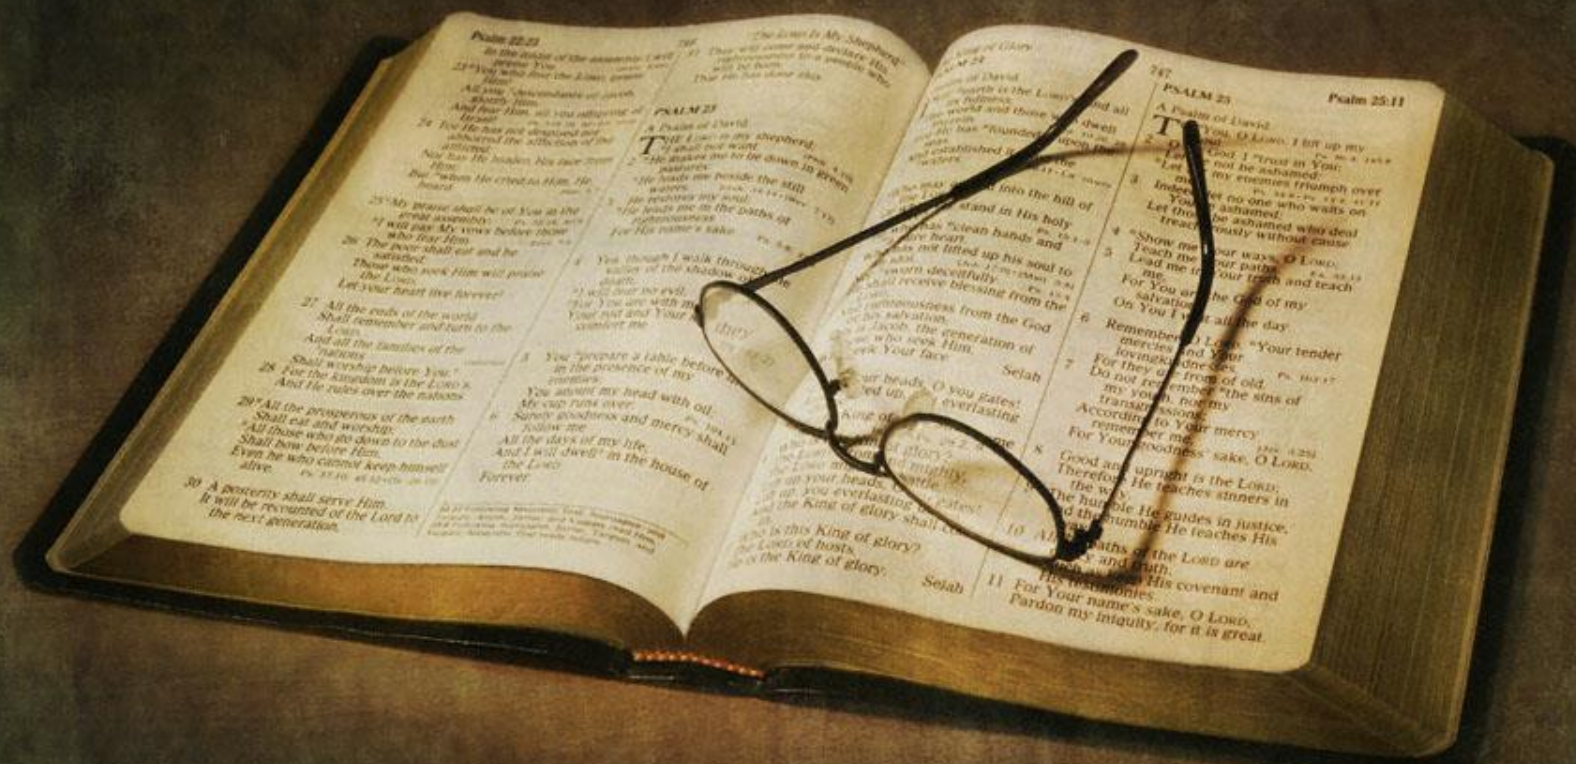 Psalm 22:23
In the midst of the assembly I will
praise You.
23 You who fear the LORD, praise
Him!
All you descendants of Jacob,
glorify Him,
And fear Him, all you offspring of
Israel!
24 For He has not despised nor
abhorred the affliction of the
afflicted;
Nor has He hidden His face from
Him;
But when He cried to Him, He
heard.
25 My praise shall be of You in the
great assembly;
I will pay My vows before those
who fear Him.
26 The poor shall eat and be
satisfied;
Those who seek Him will praise
the LORD.
Let your heart live forever!
27 All the ends of the world
Shall remember and turn to the
LORD,
And all the families of the
nations
Shall worship before You.
28 For the kingdom is the LORD's,
And He rules over the nations.
29 All the prosperous of the earth
Shall eat and worship;
All those who go down to the dust
Shall bow before Him,
Even he who cannot keep himself
alive.
30 A posterity shall serve Him.
It will be recounted of the Lord to
the next generation,
The LORD Is My Shepherd
31 They will come and declare His
righteousness to a people who
will be born,
That He has done this.
PSALM 23
A Psalm of David.
THE LORD is my shepherd;
I shall not want.
2 He makes me to lie down in green
pastures;
He leads me beside the still
waters.
3 He restores my soul;
He leads me in the paths of
righteousness
For His name's sake.
4 Yea, though I walk through
valley of the shadow of
death,
I will fear no evil;
For You are with
Your rod and Your
comfort me.
5 You prepare a table before
in the presence of my
enemies;
You anoint my head with oil;
My cup runs over.
6 Surely goodness and mercy shall
follow me
All the days of my life;
And I will dwell in the house of
the LORD
Forever.
King of Glory
of David.
earth is the LORD's, and all
its fullness,
world and those dwell
therein.
He has founded upon the
seas,
And established it the
waters.
may into the hill of
stand in His holy
has clean hands and
pure heart,
has not lifted up his soul to
sworn deceitfully.
shall receive blessing from the
righteousness from the God
his salvation.
is Jacob, the generation of
who seek Him,
seek Your face.
Selah
your heads, O you gates!
everlasting
King of
glory?
mighty,
up your heads, gates!
up, you everlasting
the King of glory shall
is this King of glory?
The LORD of hosts,
is the King of glory.
Selah
747
Psalm 25:11
PSALM 25
A Psalm of David.
You, O LORD, I lift up my
2 God, I trust in You;
Let not be ashamed;
Let my enemies triumph over
3 Indeed, let no one who waits on
You ashamed;
Let those be ashamed who deal
without cause.
4 Show me your ways, O LORD;
Teach me your paths.
5 Lead me in Your truth and teach
me,
For You are the God of my
salvation;
On You I wait all the day.
6 Remember, O LORD, Your tender
mercies and Your
lovingkindnesses,
For they are from of old.
7 Do not remember the sins of
my youth, nor my
transgressions;
According to Your mercy
remember me,
For Your goodness' sake, O LORD.
8 Good and upright is the LORD;
Therefore He teaches sinners in
the way.
The humble He guides in justice,
the humble He teaches His
10 paths of the LORD are
and truth,
His covenant and
His testimonies.
11 For Your name's sake, O LORD,
Pardon my iniquity, for it is great.